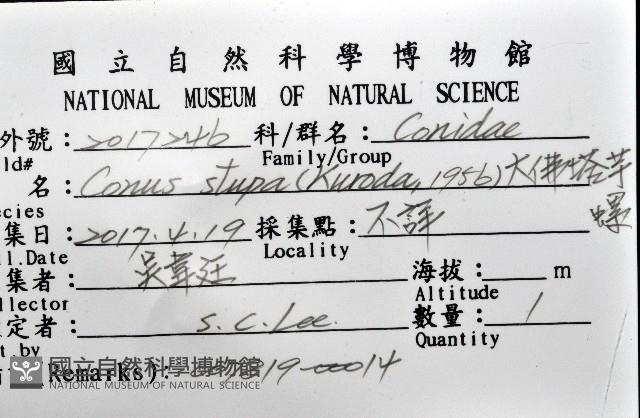 國立自然科學博物館
NATIONAL MUSEUM OF NATURAL SCIENCE
外號：2017246 科/群名：Conidae
ld# Family/Group
名：Conus stupa (Kuroda, 1956) 大佛塔芋螺
ecies
集日：2017.4.19 採集點：不詳
ll.Date Locality
集者：吳韋廷 海拔： m
llector Altitude
定者：S.C.Lee. 數量：1
t.by Quantity
(Remarks): 19-00014
國立自然科學博物館
NATIONAL MUSEUM OF NATURAL SCIENCE